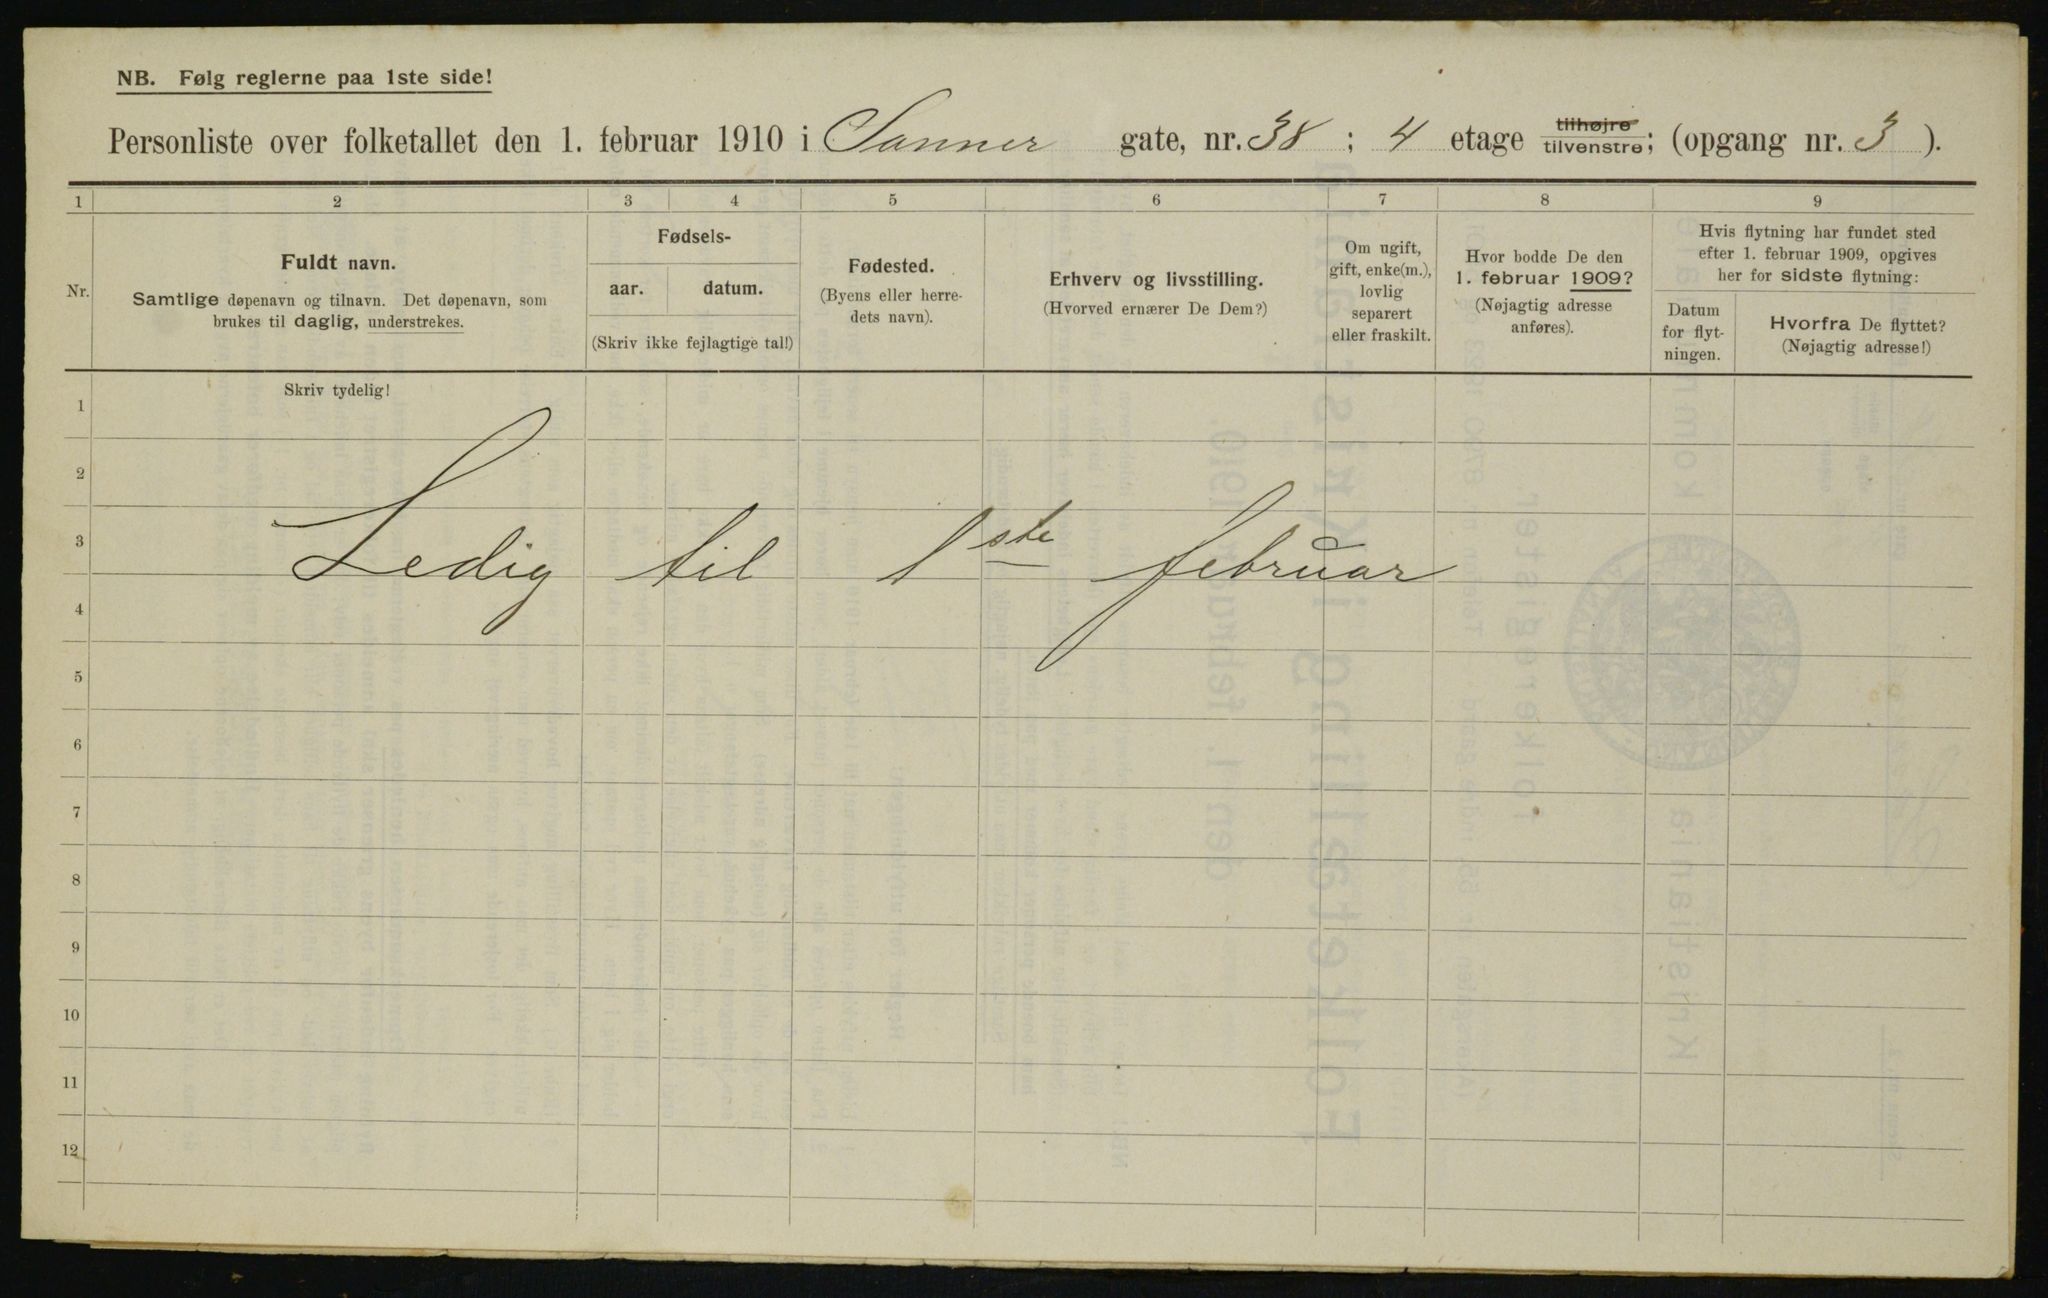 NB. Følg reglerne paa 1ste side!
Personliste over folketallet den 1. februar 1910 i Sanner gate, nr. 38 ; 4 etage tilhøjre tilvenstre; (opgang nr. 3 ).
1 2 3 4 5 6 7 8 9
Nr.
Fuldt navn.
Samtlige døpenavn og tilnavn. Det døpenavn, som
brukes til daglig, understrekes.
Fødsels-
aar. datum.
(Skriv ikke fejlagtige tal!)
Fødested.
(Byens eller herre-
dets navn).
Erhverv og livsstilling.
(Hvorved ernærer De Dem?)
Om ugift,
gift, enke(m.),
lovlig
separert
eller fraskilt.
Hvor bodde De den
1. februar 1909?
(Nøjagtig adresse
anføres).
Hvis flytning har fundet sted
efter 1. februar 1909, opgives
her for sidste flytning:
Datum
for flyt-
ningen.
Hvorfra De flyttet?
(Nøjagtig adresse!)
Skriv tydelig!
1
2
3 Ledig til 1ste februar
4
5
6
7
8
9
10
11
12